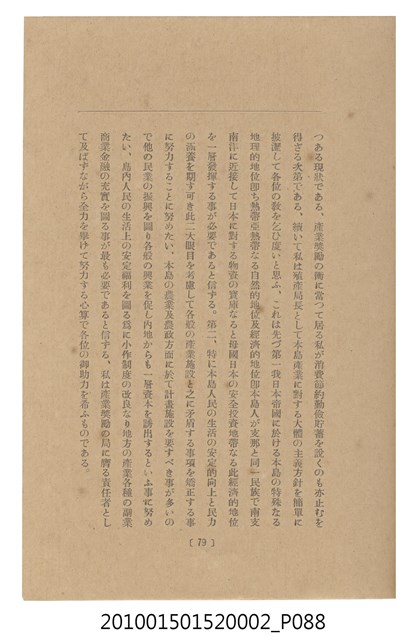 つある現狀である、產業奬勵の衝に當つて居る私が消費節約勤儉貯蓄を說くのも亦止むを
得ざる次第である、擬いて私は殖產局長として本島產業に對する大體の主義方針を簡單に
披瀝して各位の敎を乞ひ度いと思ふ、これは先づ第一我日本帝國に於ける本島の特殊なる
地理的地位卽ち熱帶亞熱帶なる自然的地位及經濟的地位卽本島人が支那と同一民族で南支
南洋に近接して日本に對する物資の寶庫なると母國日本の安全投資地帶なる此經濟的地位
を一層發揮する事が必要であると信ずる。第二、特に本島人民の生活の安定的向上と民力
の涵養を期す可き此二大眼目を考慮して各般の產業施設を之に矛盾する事項を矯正する事
に努力することに努めたい、本島の農業及農政方面に於て計畫施設を要すべき事が多いの
で他の民業の振興を圖り各般の興業を促し內地からも一層資本を誘出するといふ事に努め
たい、島內人民の生活上の安定福利を圖る爲に小作制度の改良なり地方の產業各種の副業
商業金融の充實を圖る事が最も必要であると信ずる、私は產業奬勵の局に膺る責任者とし
て及ばずながら全力を擧けて努力する心算で各位の御助力を希ふものである。
〔 79 〕
201001501520002_P088